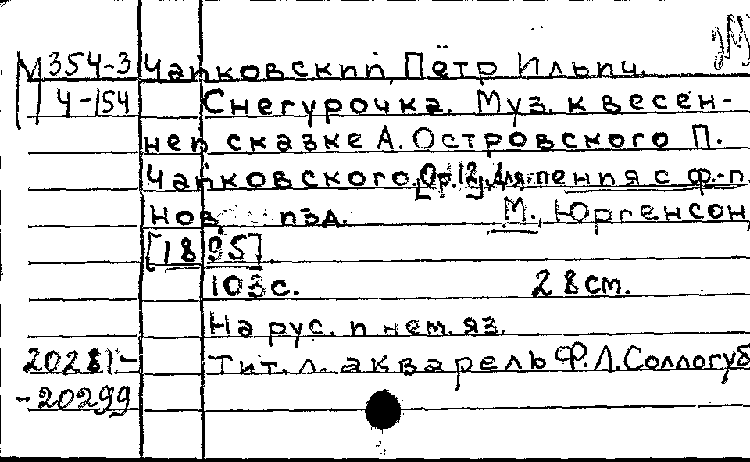 М 354-3 Чайковский, Пётр Ильич.
4-154 Снегурочка. Муз. к весен-
ней сказке А. Островского П.
Чайковского, [Ор. 12]. Для пения с ф.-п.
Нов. изд. М., Юргенсон,
[1895].
103 с. 28 см.
На рус. и нем. яз.
20281- Тит. л. акварель Ф. Л. Соллогуб
-20299